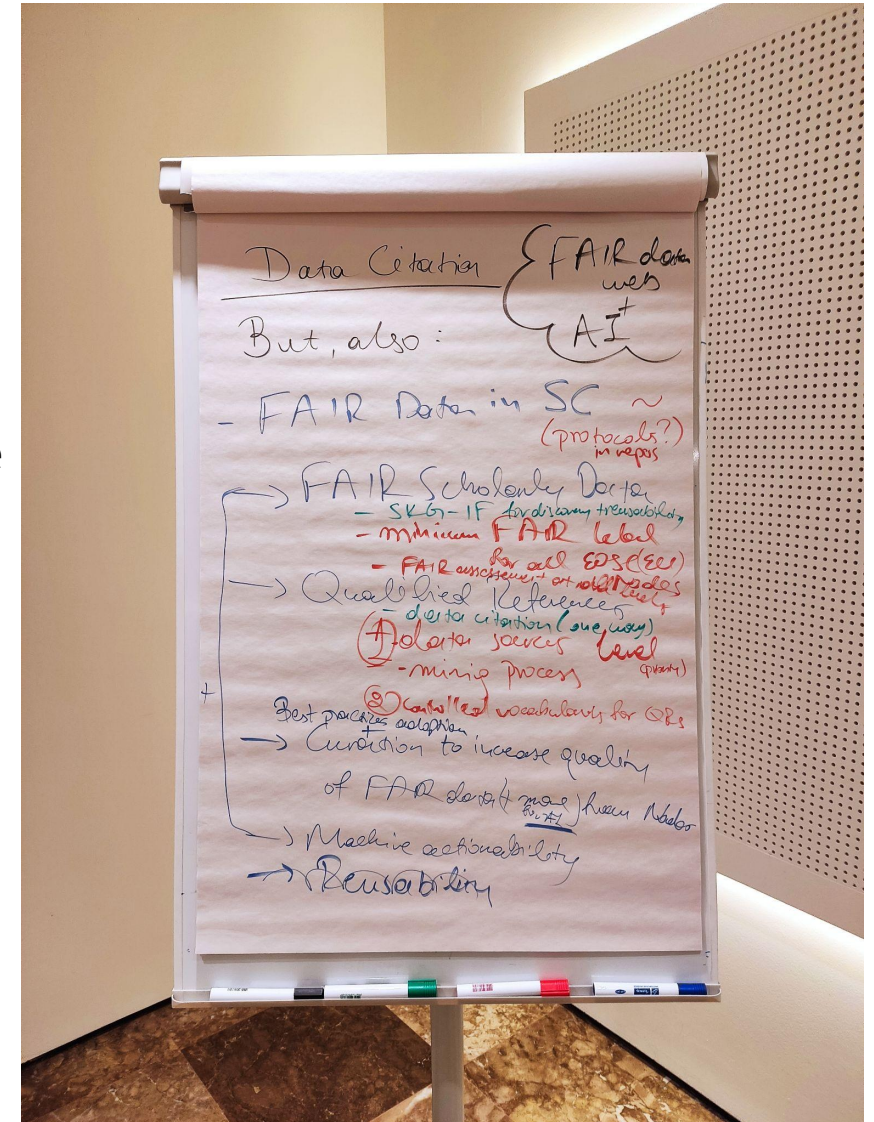 Data Citation
{ FAIR data
web
+
AI
But, also:
- FAIR Data in SC ~
(protocols?)
in repos
→ FAIR Scholarly Data
- SKG-IF for discovery + reusability
- minimum FAIR label
for all EOSC (EU)
Nodes
- FAIR assessment at all levels
→ Qualified References
- data citation (one way)
① data sources level
(priority)
- mining process
② controlled vocabularies for QRs
+
Best practices adoption
+
→ Curation to increase quality
of FAIR data (+ more) from Nodes
for AI
→ Machine actionability
→ Reusability